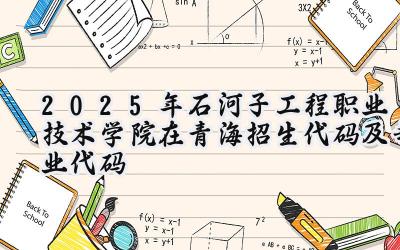 sin A
3X2
Back To
School
f(x) = x-1
x = x-1
x = y+1
2025年石河子工程职业
技术学院在青海招生代码及
业代码
Back To
School
f(x) = x-1
x = x-1
x = y+1
7²